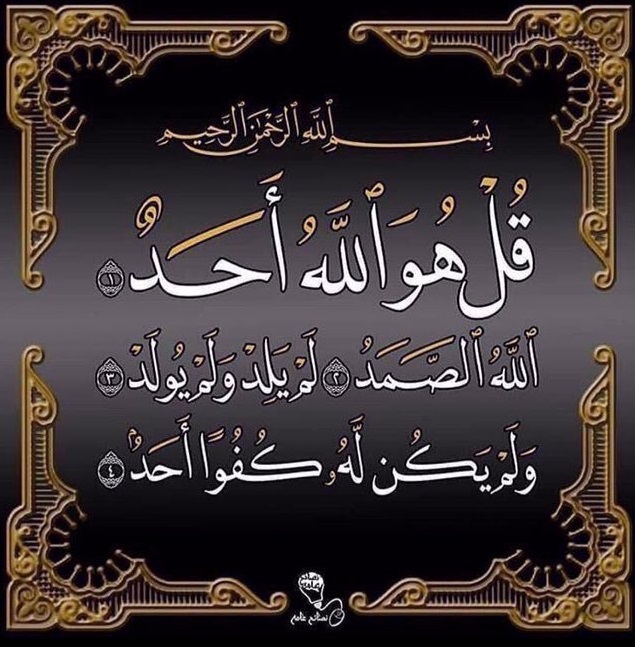 بِسْمِ ٱللَّهِ ٱلرَّحْمَٰنِ ٱلرَّحِيمِ
قُلْ هُوَ ٱللَّهُ أَحَدٌ ١
ٱللَّهُ ٱلصَّمَدُ ٢ لَمْ يَلِدْ وَلَمْ يُولَدْ ٣
وَلَمْ يَكُن لَّهُۥ كُفُوًا أَحَدٌۢ ٤
نصائح عامه